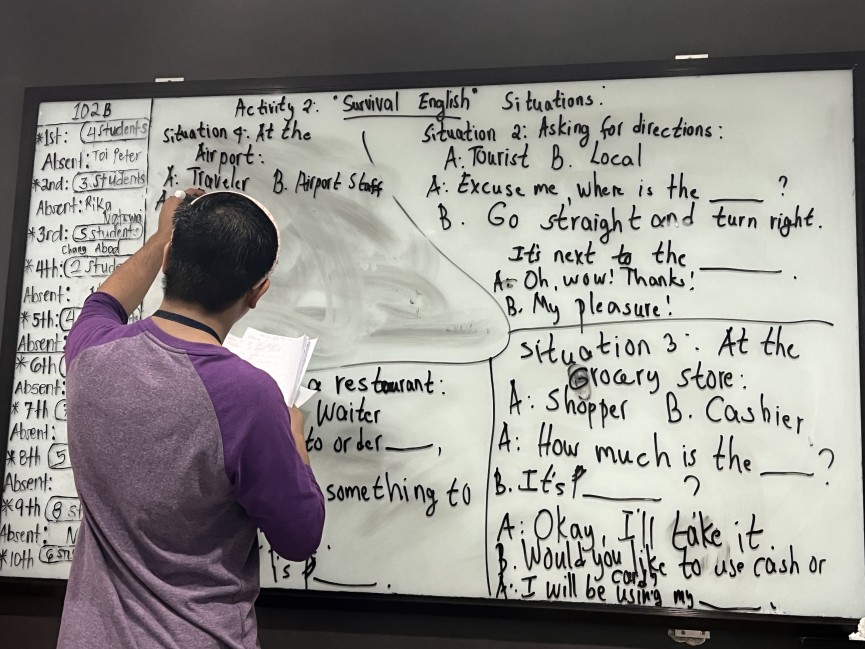 Activity 2: "Survival English" Situations:
102B
*1st: (4 students)
Absent: Toi Peter
*2nd: (3 Students)
Absent: Rika
*3rd: (5 students)
Chang Abod
*4th: (2
Absent:
*5th: (4
Absent:
*6th
Absent:
*7th
Absent:
*8th (5
Absent:
*9th (8 st
Absent: N
*10th (6
Situation 4: At the
Airport:
A: Traveler B. Airport Staff
A
Situation 2: Asking for directions:
A: Tourist B. Local
A: Excuse me, where is the ____ ?
B. Go straight and turn right.
It's next to the ____ .
A: Oh, wow! Thanks!
B. My pleasure!
a restaurant:
Waiter
to order ____,
something to
____.
Situation 3: At the
Grocery store:
A: Shopper B. Cashier
A: How much is the ____ ?
B. It's ₱ ____ ?
A: Okay, I'll take it.
B. Would you like to use cash or
card?
A: I will be using my ____.